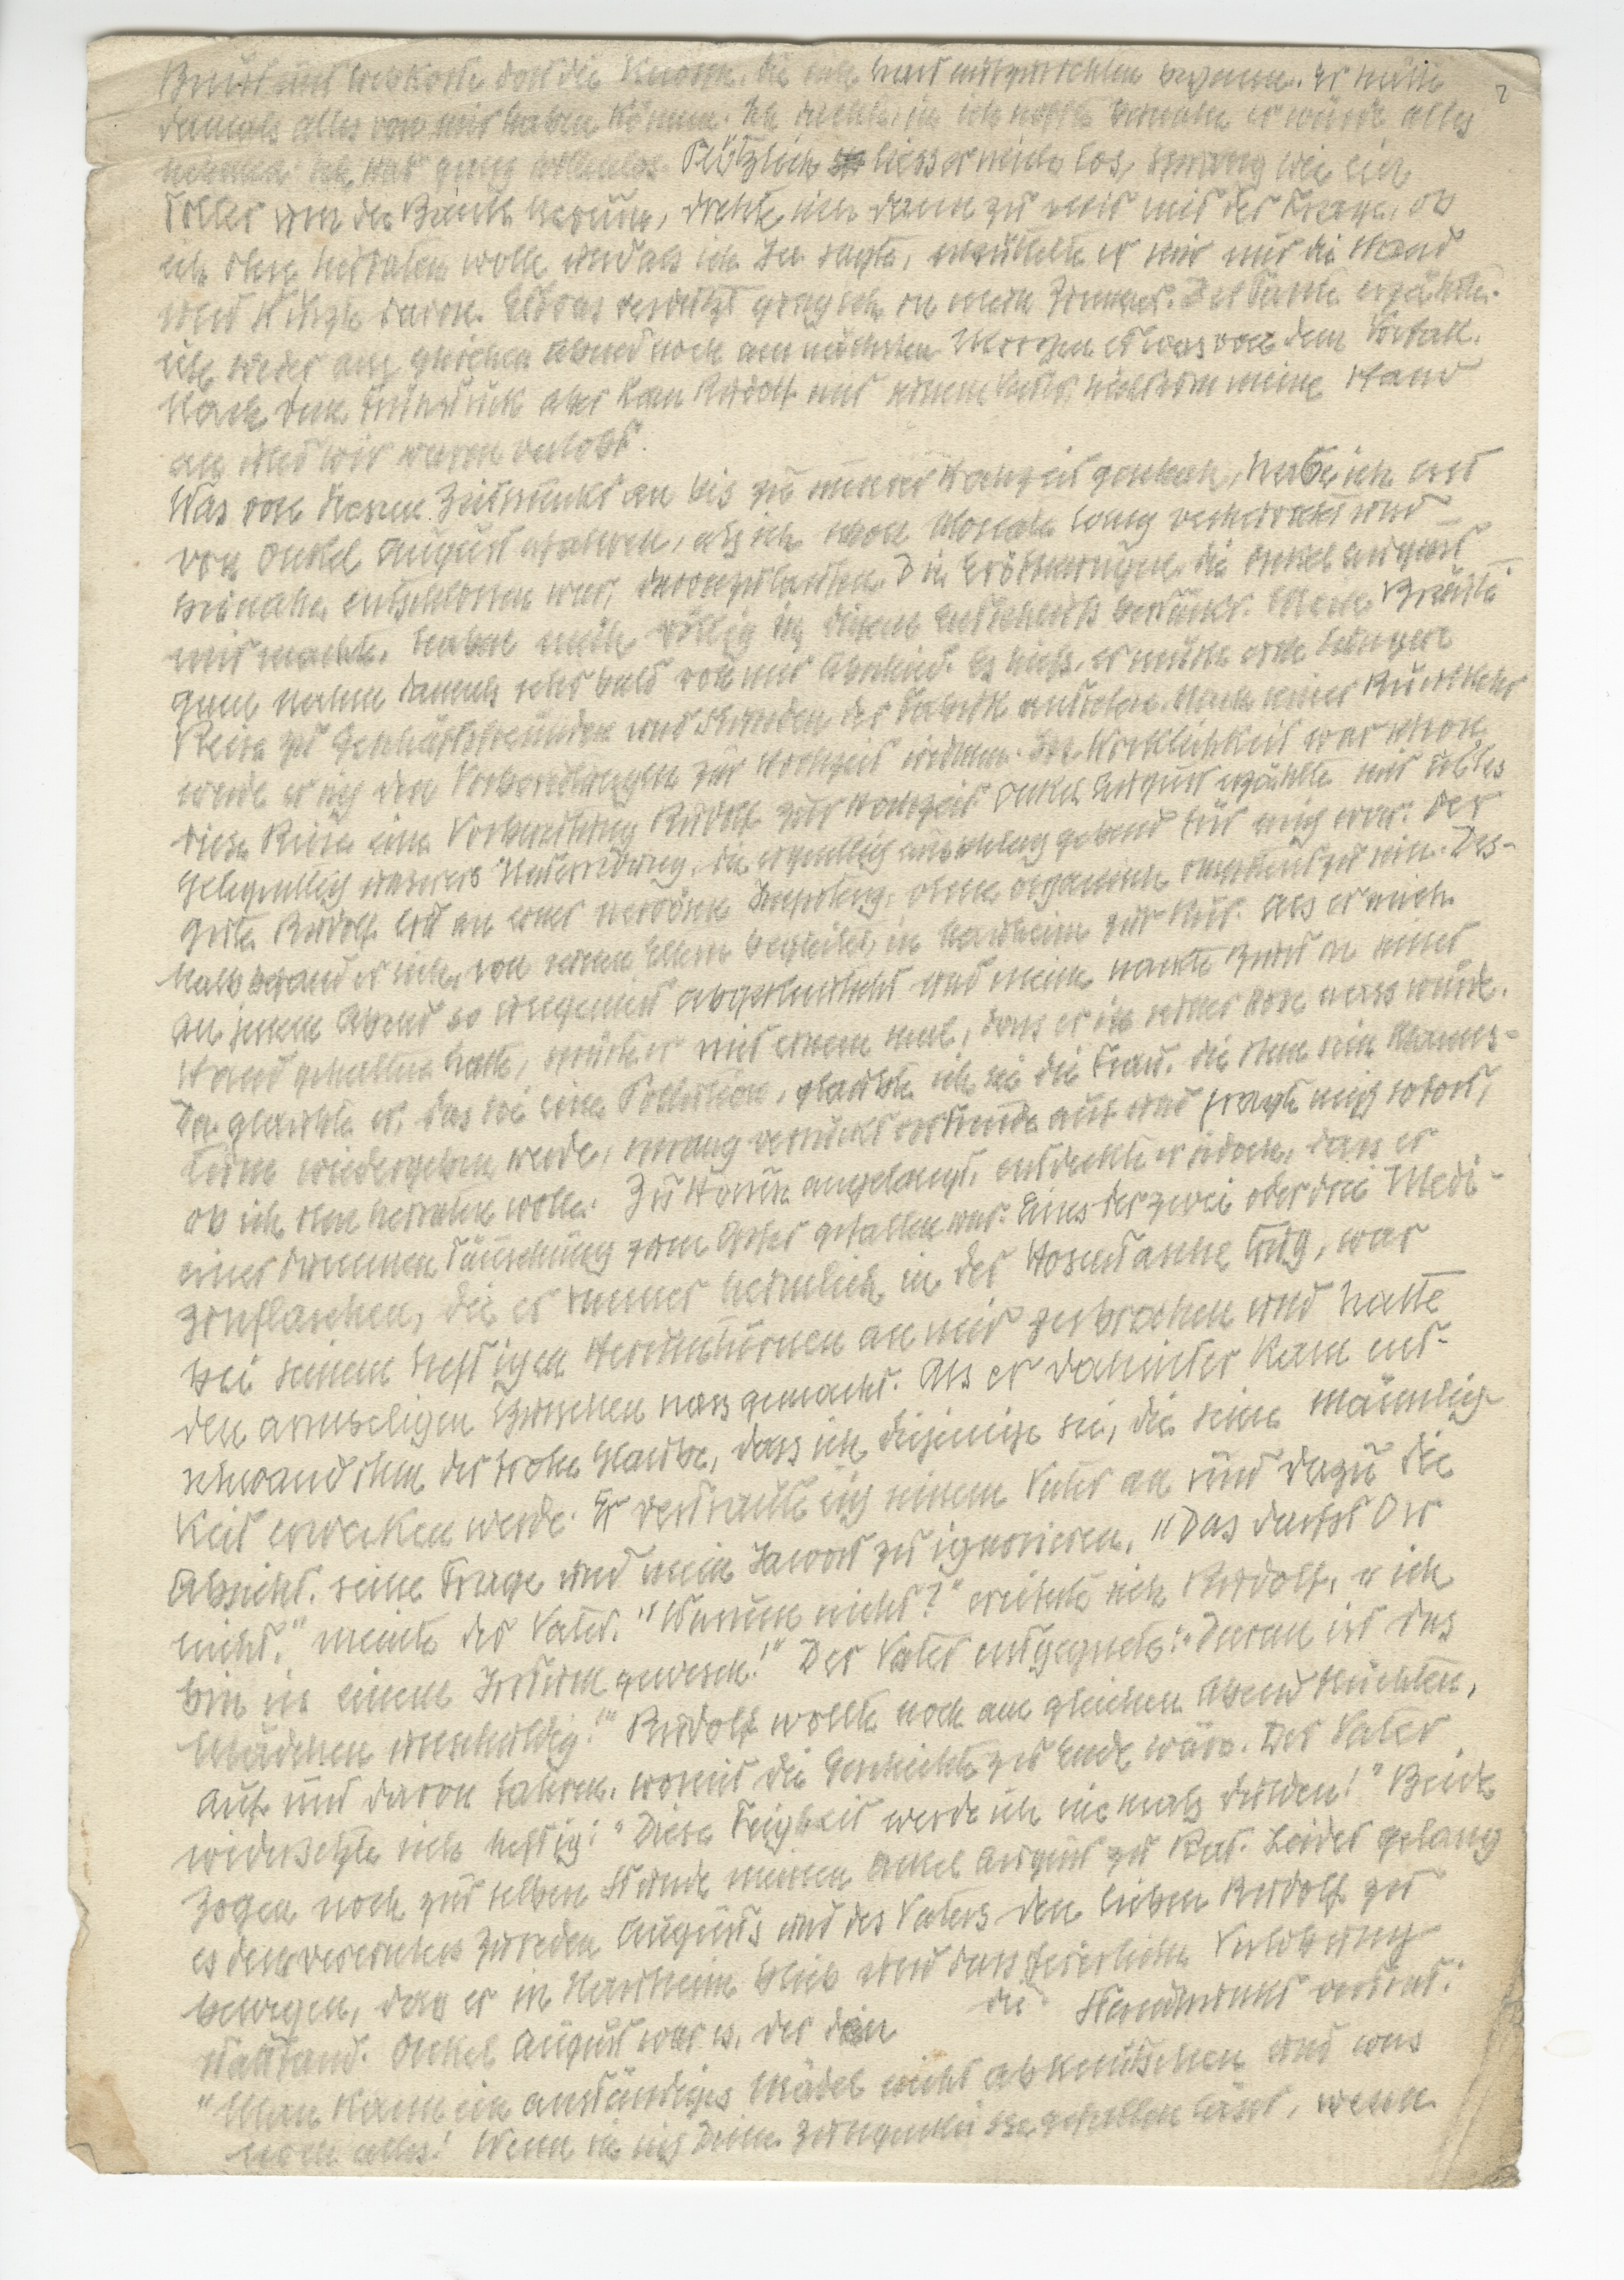 Brust und liebkoste dort die Knospe, die sich hart aufzurichten begann. Er hätte
damals alles von mir haben können. Ich dachte, ja ich hoffte beinahe er würde alles
nehmen. Ich war ganz willenlos. Plötzlich liess er mich los, sprang wie ein
Toller um die Bank herum, drehte sich dann zu mir mit der Frage, ob
ich ihn heiraten wolle und als ich Ja sagte, schüttelte er mir nur die Hand
und stürzte davon. Etwas verdutzt ging ich in mein Zimmer. Der Tante erzählte
ich weder am gleichen Abend noch am nächsten Morgen etwas von dem Vorfall.
Nach dem Frühstück aber kam Rudolf mit seinem Vater, hielt um meine Hand
an und wir waren verlobt.
Was von diesem Zeitpunkt an bis zu unserer Hochzeit geschah, habe ich erst
von Onkel August erfahren, als ich schon Monate lang verheiratet und
beinahe entschlossen war, davonzulaufen. Die Eröffnungen, die Onkel August
mir machte, haben mich völlig in diesem Entschluss bestärkt. Mein Bräuti-
gam nahm damals sehr bald von mir Abschied. Es hiess, er müsse eine längere
Reise zu Geschäftsfreunden und Kunden der Fabrik antreten. Nach seiner Rückkehr
werde er sich den Vorbereitungen zur Hochzeit widmen. In Wirklichkeit war schon
diese Reise eine Vorbereitung Rudolfs zur Hochzeit. Onkel August erzählte mir alles
gelegentlich unserer Unterredung, die eigentlich ausschlaggebend für mich war: Der
gute Rudolf litt an einer nervösen Impotenz, ohne organisch impotent zu sein. Des-
halb befand er sich, von seinen Eltern begleitet, in Nauheim zur Kur. Als er mich
an jenem Abend so ungeniert abgeknutscht und meine nackte Brust in seiner
Hand gehalten hatte, spürte er mit einem mal, dass er in seiner Hose nass wurde.
Da glaubte er, das sei eine Pollution, glaubte ich sei die Frau, die ihm sein Mannes-
tum wiedergeben werde, sprang verrückt vor Freude auf und fragte mich sofort,
ob ich ihn heiraten wolle. Zu Hause angelangt, entdeckte er jedoch, dass er
einer dummen Täuschung zum Opfer gefallen war. Eines der zwei oder drei Medi-
zinflaschen, die er immer heimlich in der Hosentasche trug, war
bei seinem heftigen Herumturnen an mir zerbrochen und hatte
den armseligen Burschen nass gemacht. Als er dahinter kam ent-
schwand ihm der frohe Glaube, dass ich diejenige sei, die seine Männlich-
keit erwecken werde. Er vertraute sich seinem Vater an und dazu die
Absicht, seine Frage und mein Jawort zu ignorieren. "Das darfst Du
nicht," meinte der Vater. "Warum nicht?" ereiferte sich Rudolf, "ich
bin in einem Irrtum gewesen!" Der Vater entgegnete: "Daran ist das
Mädchen unschuldig!" Rudolf wollte noch am gleichen Abend flüchten,
auf und davon fahren, womit die Geschichte zu Ende wäre. Der Vater
widersetzte sich heftig: "Diese Feigheit werde ich niemals dulden!" Beide
zogen noch zur selben Stunde meinen Onkel August zu Rat. Leider gelang
es dem vereinten Zureden Augusts und des Vaters den lieben Rudolf zu
bewegen, dass er in Nauheim blieb und dass feierliche Verlobung
stattfand. Onkel August war es, der den die Standpunkt vertrat:
"Man kann ein anständiges Mädel nicht abknutschen und was
noch alles! Wenn sie sich Deine Zungenküsse gefallen lässt, wenn